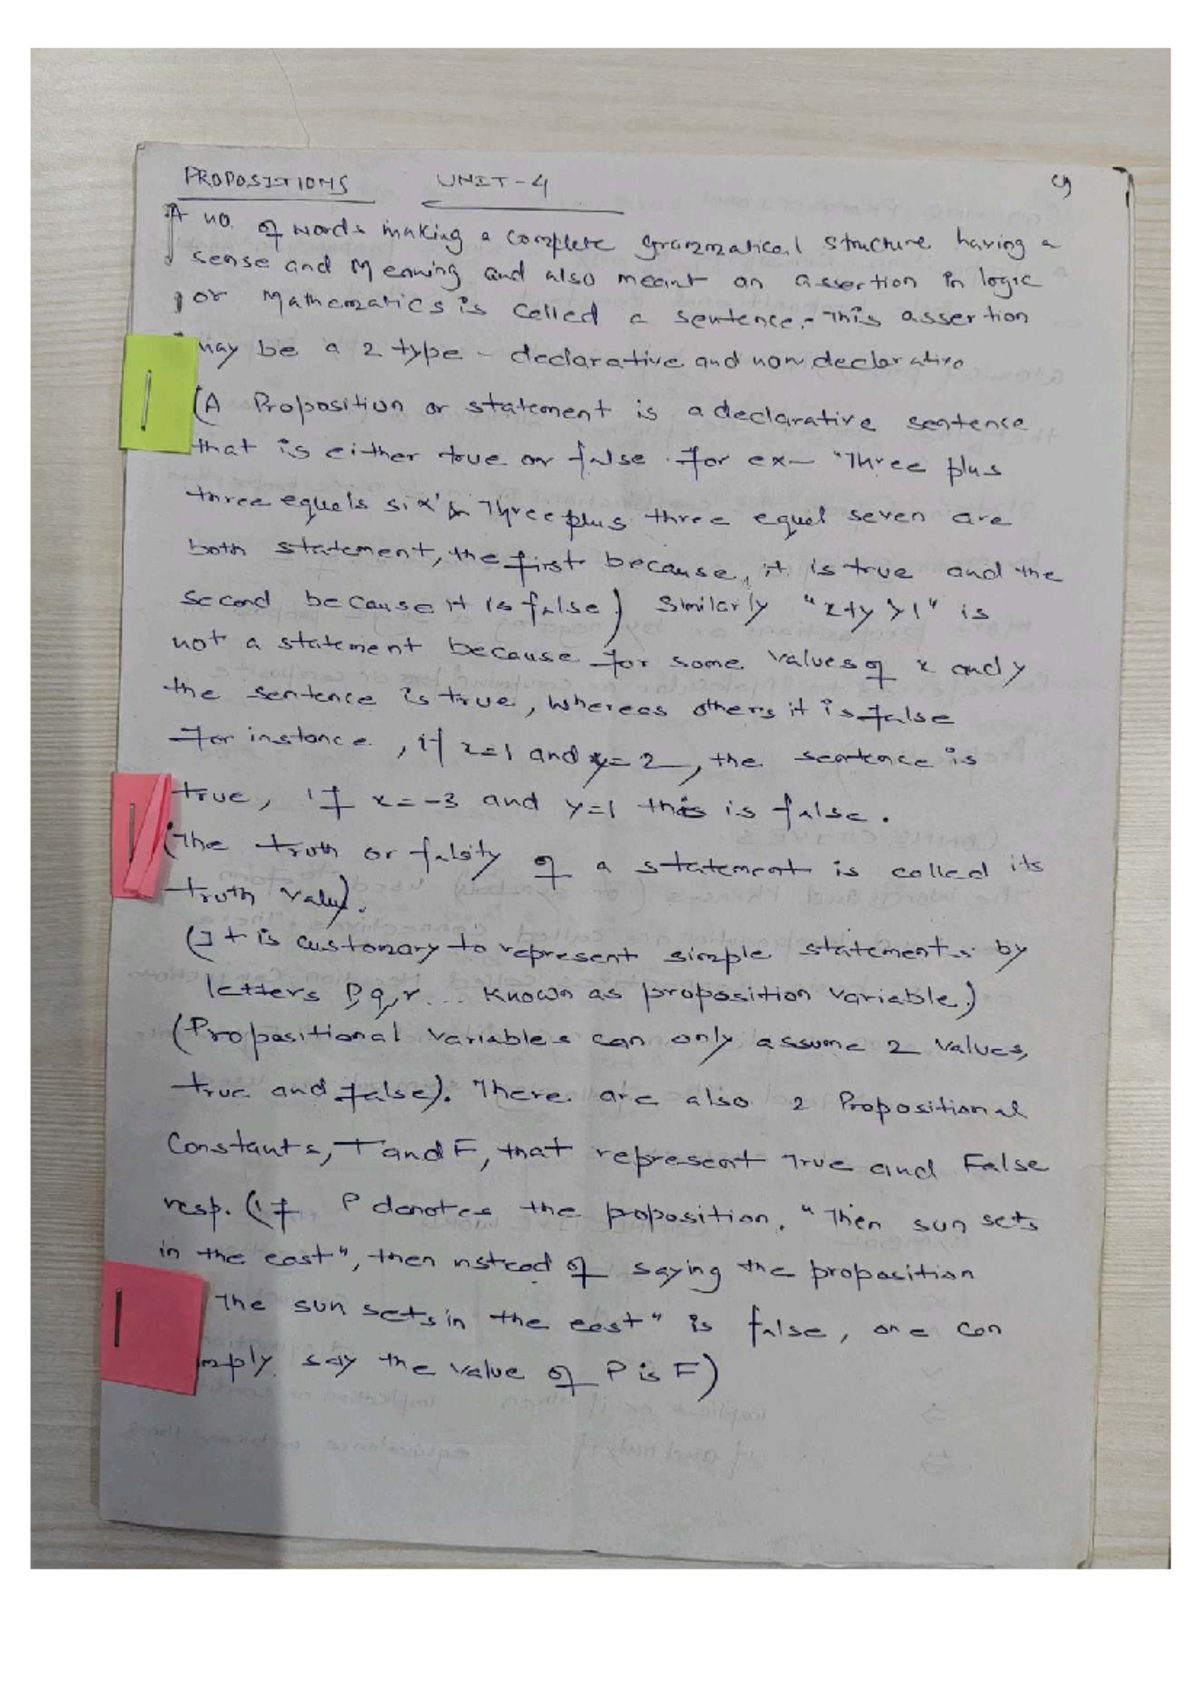 PROPOSITIONS UNIT-4
A no. of words making a complete grammatical structure having a
sense and Meaning and also meant an assertion in logic
or Mathematics is called a sentence. This assertion
may be a 2 type - declarative and non declarative
(A Proposition or statement is a declarative sentence
that is either true or false. For ex- "Three plus
three equals six" & Three plus three equal seven are
both statement, the first because, it is true and the
second because it is false) Similarly "x+y>1" is
not a statement because for some values of x and y
the sentence is true, whereas others it is false
For instance, if x=1 and y=2, the sentence is
true, if x=-3 and y=1 this is false.
(The truth or falsity of a statement is called its
truth value).
(It is customary to represent simple statements by
letters P,q,r... known as proposition variable.)
(Propositional variables can only assume 2 values,
true and false). There are also 2 Propositional
Constants, T and F, that represent True and False
resp. (if P denotes the proposition, "Then sun sets
in the east", then nstead of saying the proposition
The sun sets in the east" is false, one con
mply say the value of P is F)